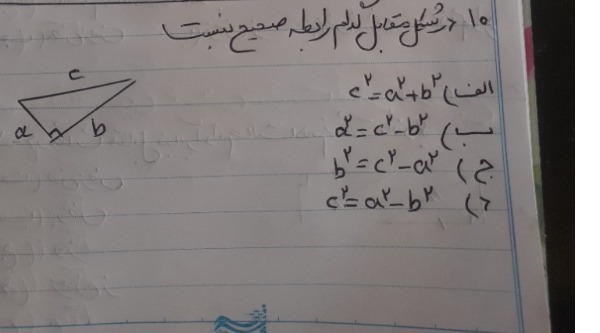 ۱۰) در شکل مقابل کدام رابطه صحیح نیست
الف) c²=a²+b²
ب) a²=c²-b²
ج) b²=c²-a²
د) c²=a²-b²
c
a b